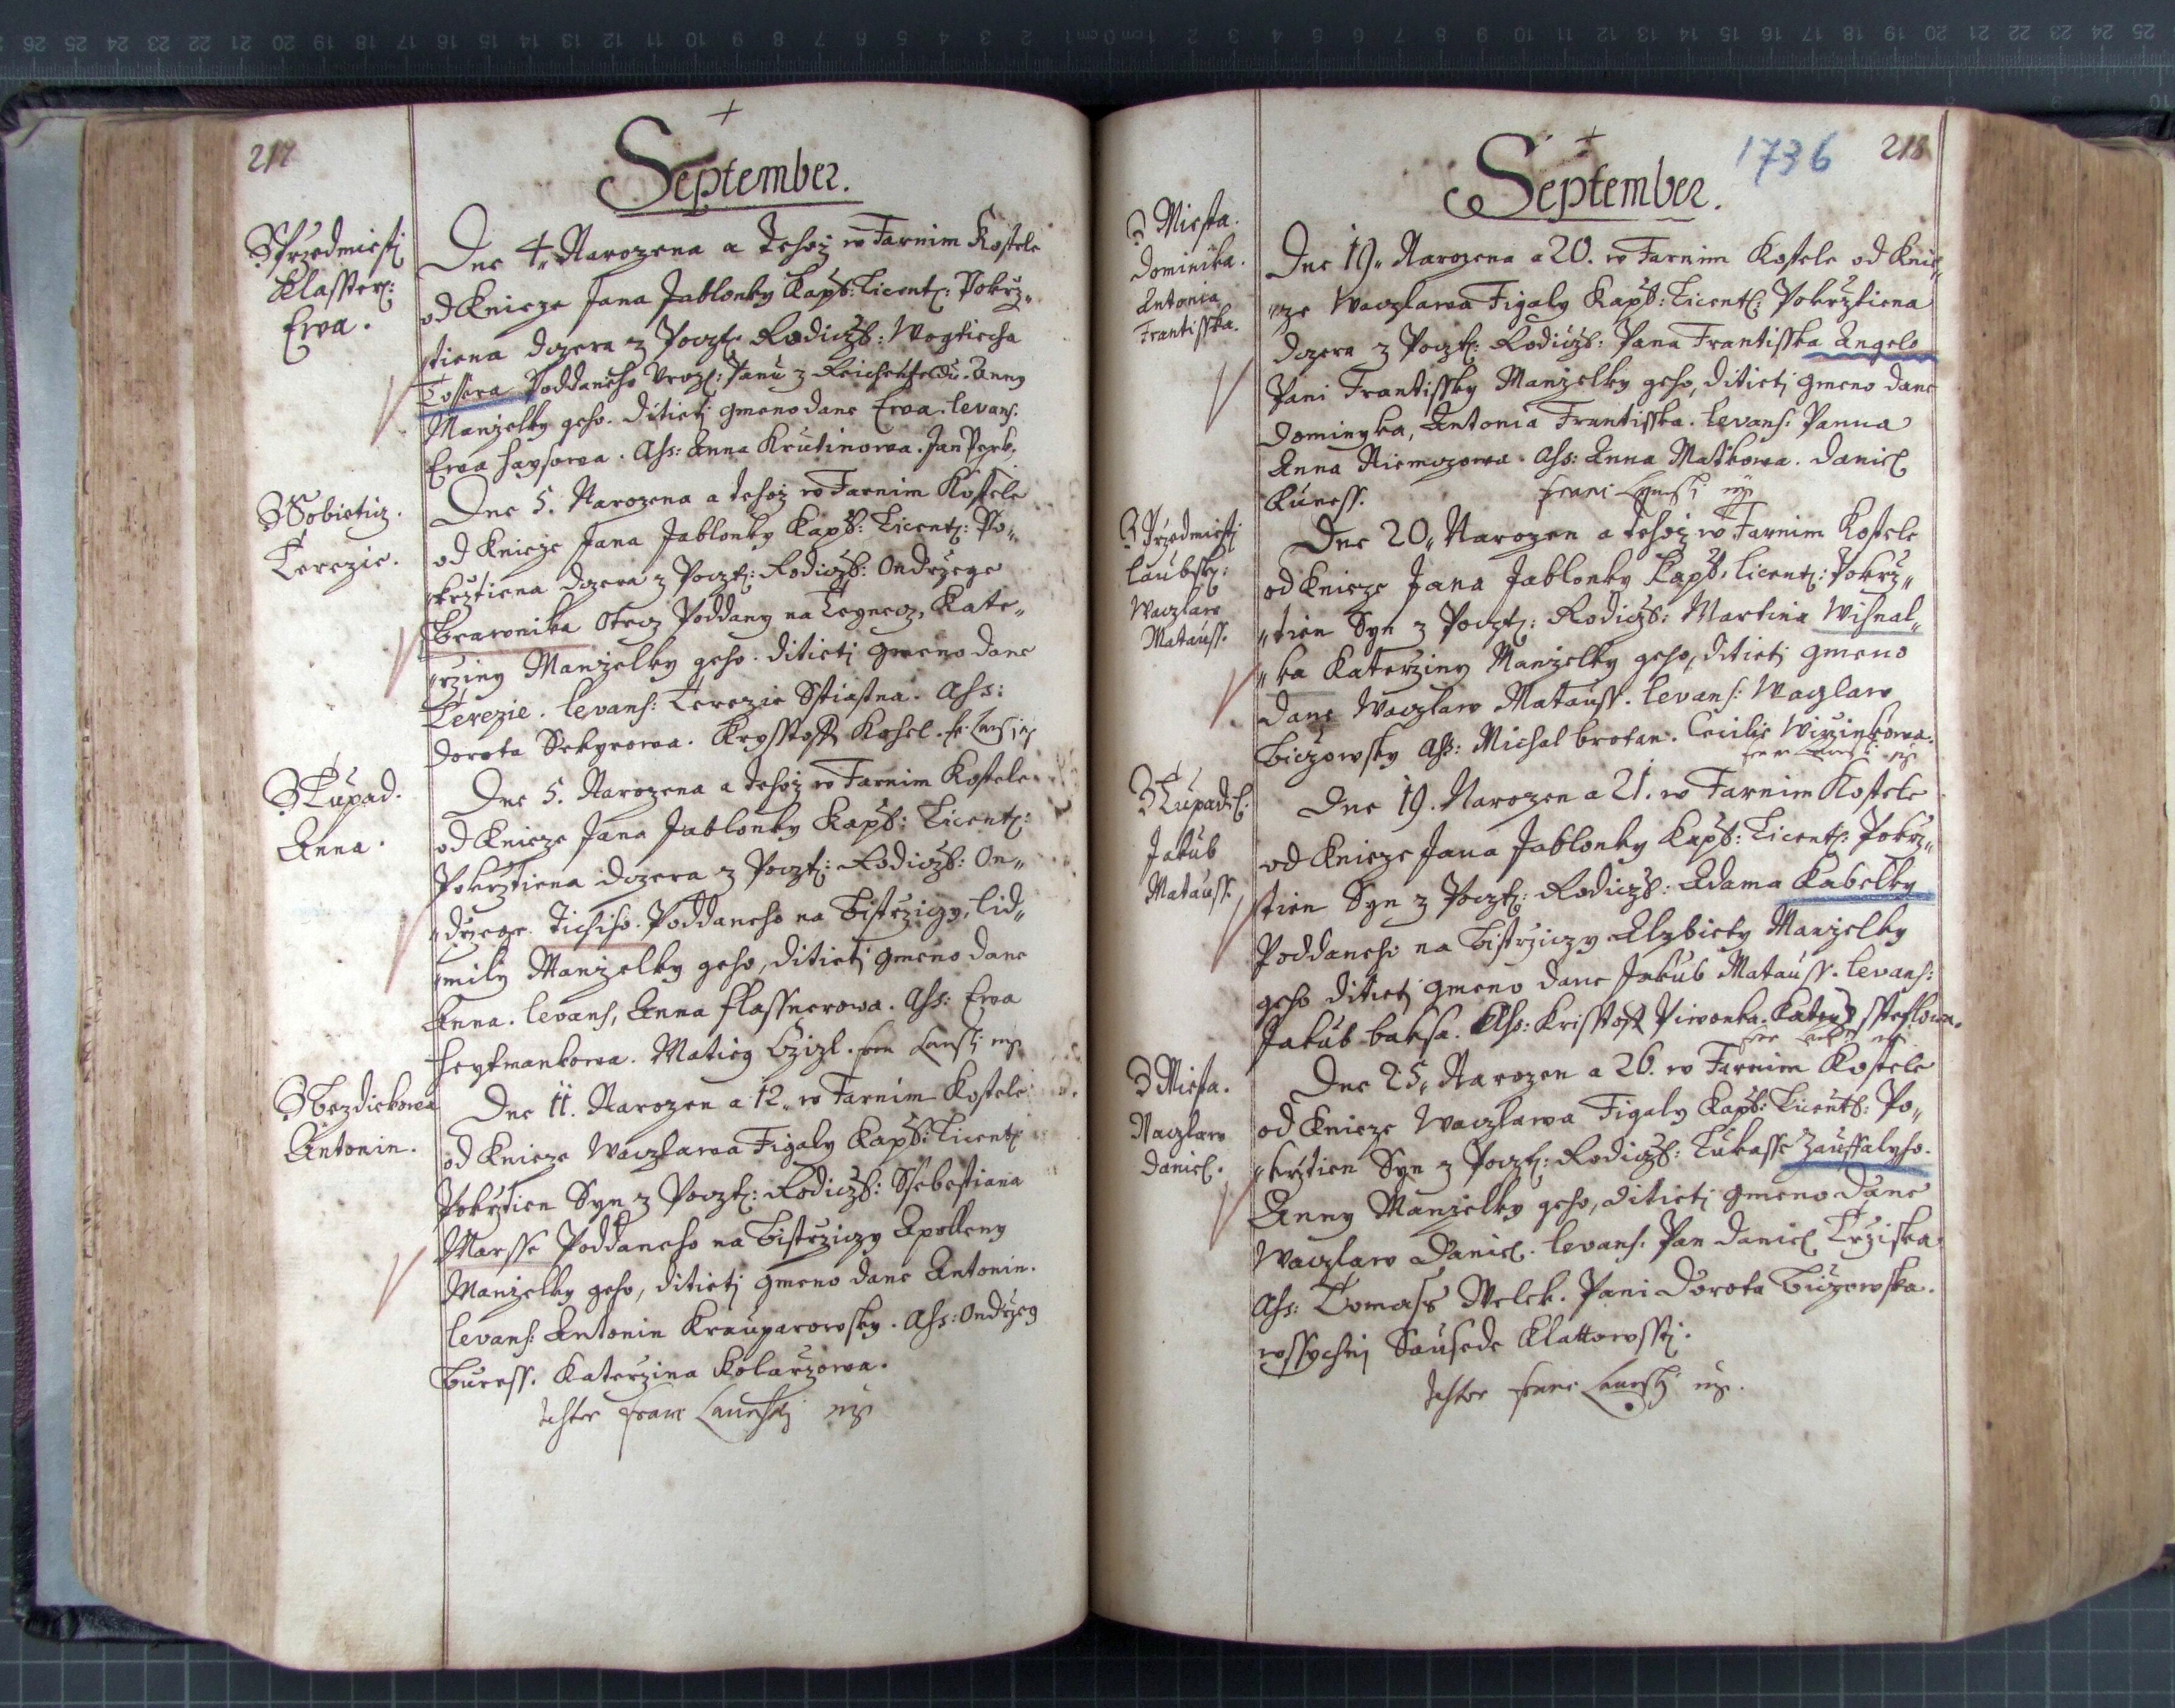 217
September.
Z Przedmiestj
Klasster:
Ewa.
Dne 4. Narozena a tehož w Farnim Kostele
od Knieze Jana Jablonky Kapl: Licent: Pokrz„
„stiena dczera z Poczt: Rodiczů: Wogtiecha
Poddaneho Uroz: Panu z Reichenfeldu. Anny
Manželky geho. ditieti gmeno dane Ewa. levans:
Ewa Haysowa. Ass: Anna Krutinowa. Jan
Z Sobieticz.
Terezie.
Dne 5. Narozena a tehož w Farnim Kostele
od Knieze Jana Jablonky Kapl: Licent: Po„
„krztiena dczera z Poczt: Rodiczů: Ondrzege
Brawnika Otecz Poddany na Teynecz, Kate„
„rziny Manželky geho. ditieti gmeno dane
Terezie. levans: Terezie Stiastna. Ass:
Dorota Sekyrowa. Krysstoff Kohel.
Z Lupad.
Anna.
Dne 5. Narozena a tehož w Farnim Kostele
od Knieze Jana Jablonky Kapl: Licent:
Pokrztiena dczera z Poczt: Rodiczů: On„
„drzege Tichiho Poddaneho na Bistrziczy, lid„
„mily Manželky geho, ditieti gmeno dane
Anna. levans, Anna Flassnerowa. Ass: Ewa
Heytmankowa. Matieg Cžizl.
Z Bezdiekowa
Antonin.
Dne 11. Narozen a 12. w Farnim Kostele
od Knieze Waczlawa Figaly Kapl: Licent:
Pokrztien Syn z Poczt: Rodiczů: Ssebestiana
Marsse Poddaneho na Bistrziczy Apolleny
Manželky geho, ditieti gmeno dane Antonin.
levans: Antonin Krauparowsky. Ass: Ondrzeg
Buress. Katerzina Kolarzowa.
1736
218
September.
Z Miesta.
Dominika.
Antonia
Frantisska.
Dne 19. Narozena a 20. w Farnim Kostele od Knie„
„ze Waczlawa Figaly Kapl: Licent: Pokrztiena
dczera z Poczt: Rodiczů: Pana Frantisska Angelo
Pani Frantissky Manželky geho, ditieti gmeno dane
Dominyka, Antonia Frantisska. levans: Panna
Anna Niemczowa. Ass: Anna Matkowa. Daniel
Kuness.
Z Przedmiestj
Laubsk:
Waczlaw
Matauss.
Dne 20. Narozen a tehož w Farnim Kostele
od Knieze Jana Jablonky Kapl: Licent: Pokrz„
„tien Syn z Poczt: Rodiczů: Martina Wisnal„
„ka Katerziny Manželky geho, ditieti gmeno
dane Waczlaw Matauss. levans: Waczlaw
Biczowsky Ass: Michal Brotan. Cecilie
Z Lupadel:
Jakub
Matauss.
Dne 19. Narozen a 21. w Farnim Kostele
od Knieze Jana Jablonky Kapl: Licent: Pokrz„
„stien Syn z Poczt: Rodiczů: Adama Kabelky
Poddaneho na Bistrziczy Alzbiety Manželky
geho ditieti gmeno dane Jakub Matauss. levans:
Jakub Baksa. Ass: Krisstoff Piwonka.
Z Miesta.
Waczlaw
Daniel.
Dne 25. Narozen a 26. w Farnim Kostele
od Knieze Waczlawa Figaly Kapl: Licent: Po„
„krztien Syn z Poczt: Rodiczů: Lukasse Zauffalyho.
Anny Manželky geho, ditieti gmeno dane
Waczlaw Daniel. levans: Pan Daniel Trziska.
Ass: Tomass Welek. Pani Dorota Biczowska.
wssychni Sausede Klattowsstj.